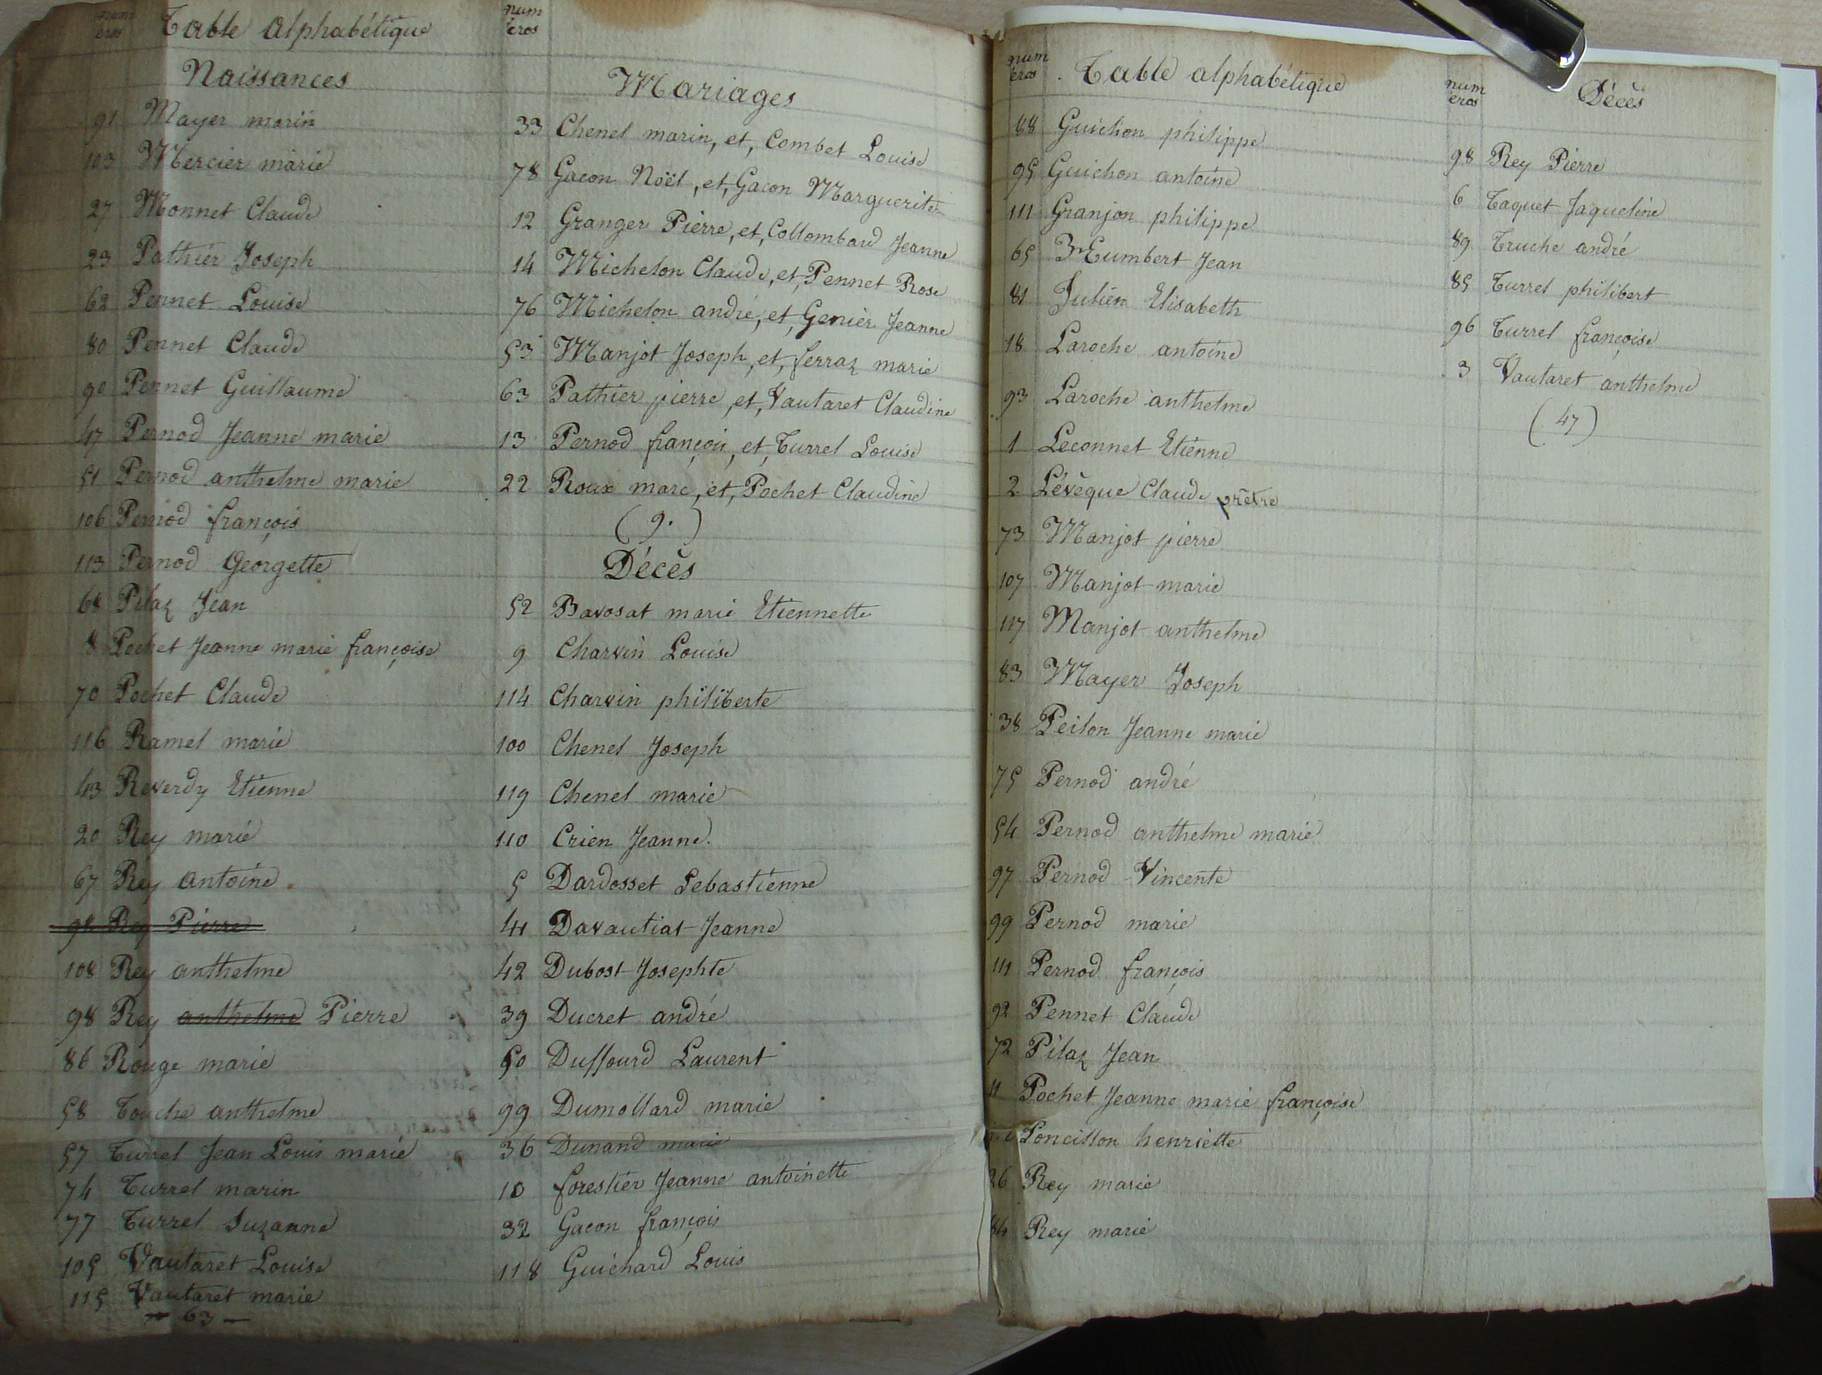 num
éros
Table Alphabétique
Naissances
91 Mayer marin
103 Mercier marie
27 Monnet Claude
23 Pathier Joseph
62 Pennet Louise
80 Pennet Claude
90 Pennet Guillaume
47 Pernod Jeanne marie
51 Pernod anthelme marie
106 Pernod françois
113 Pernod Georgette
68 Pilaz Jean
8 Pochet Jeanne marie françoise
70 Pochet Claude
116 Ramel marie
43 Reverdy Etienne
20 Rey marie
67 Rey antoine
98 Rey Pierre
108 Rey anthelme
98 Rey anthelme Pierre
86 Rouge marie
58 Touche anthelme
57 Turrel Jean Louis marie
74 Turrel marin
77 Turrel Suzanne
105 Vautaret Louise
115 Vautaret marie
— 63 —
num
éros
Mariages
33 Chenel marin, et, Combet Louise
78 Gacon Noël, et, Gacon Marguerite
12 Granger Pierre, et, Collombard Jeanne
14 Michelon Claude, et, Pennet Rose
76 Michelon andré, et, Genier Jeanne
53 Manjot Joseph, et, ferraz marie
63 Pathier pierre, et, Vautaret Claudine
13 Pernod françois, et, Turrel Louise
22 Roux marc, et, Pochet Claudine
(9.)
Décès
52 Bavosat marie Etiennette
9 Charvin Louise
114 Charvin philiberte
100 Chenel Joseph
119 Chenel marie
110 Crien Jeanne
5 Dardosset Sebastienne
41 Davautiat Jeanne
42 Dubost Josephte
39 Ducret andré
50 Duffourd Laurent
99 Dumollard marie
36 Dunand marie
10 forestier Jeanne antoinette
32 Gacon françois
118 Guichard Louis
num
éros
Table alphabétique
88 Guichon philippe
95 Guichon antoine
111 Granjon philippe
65 Humbert Jean
81 Julien Elisabeth
18 Laroche antoine
93 Laroche anthelme
1 Leconnet Etienne
2 Lévèque Claude prêtre
73 Manjot pierre
107 Manjot marie
117 Manjot anthelme
83 Mayer Joseph
38 Peilon Jeanne marie
75 Pernod andré
54 Pernod anthelme marie
97 Pernod Vincente
99 Pernod marie
111 Pernod françois
92 Pennet Claude
72 Pilaz Jean
11 Pochet Jeanne marie françoise
Poncillon henriette
26 Rey marie
84 Rey marie
num
éros
Décès
98 Rey Pierre
6 Taquet Jaqueline
89 Truche andré
85 Turrel philibert
96 Turrel françoise
3 Vautaret anthelme
(47)